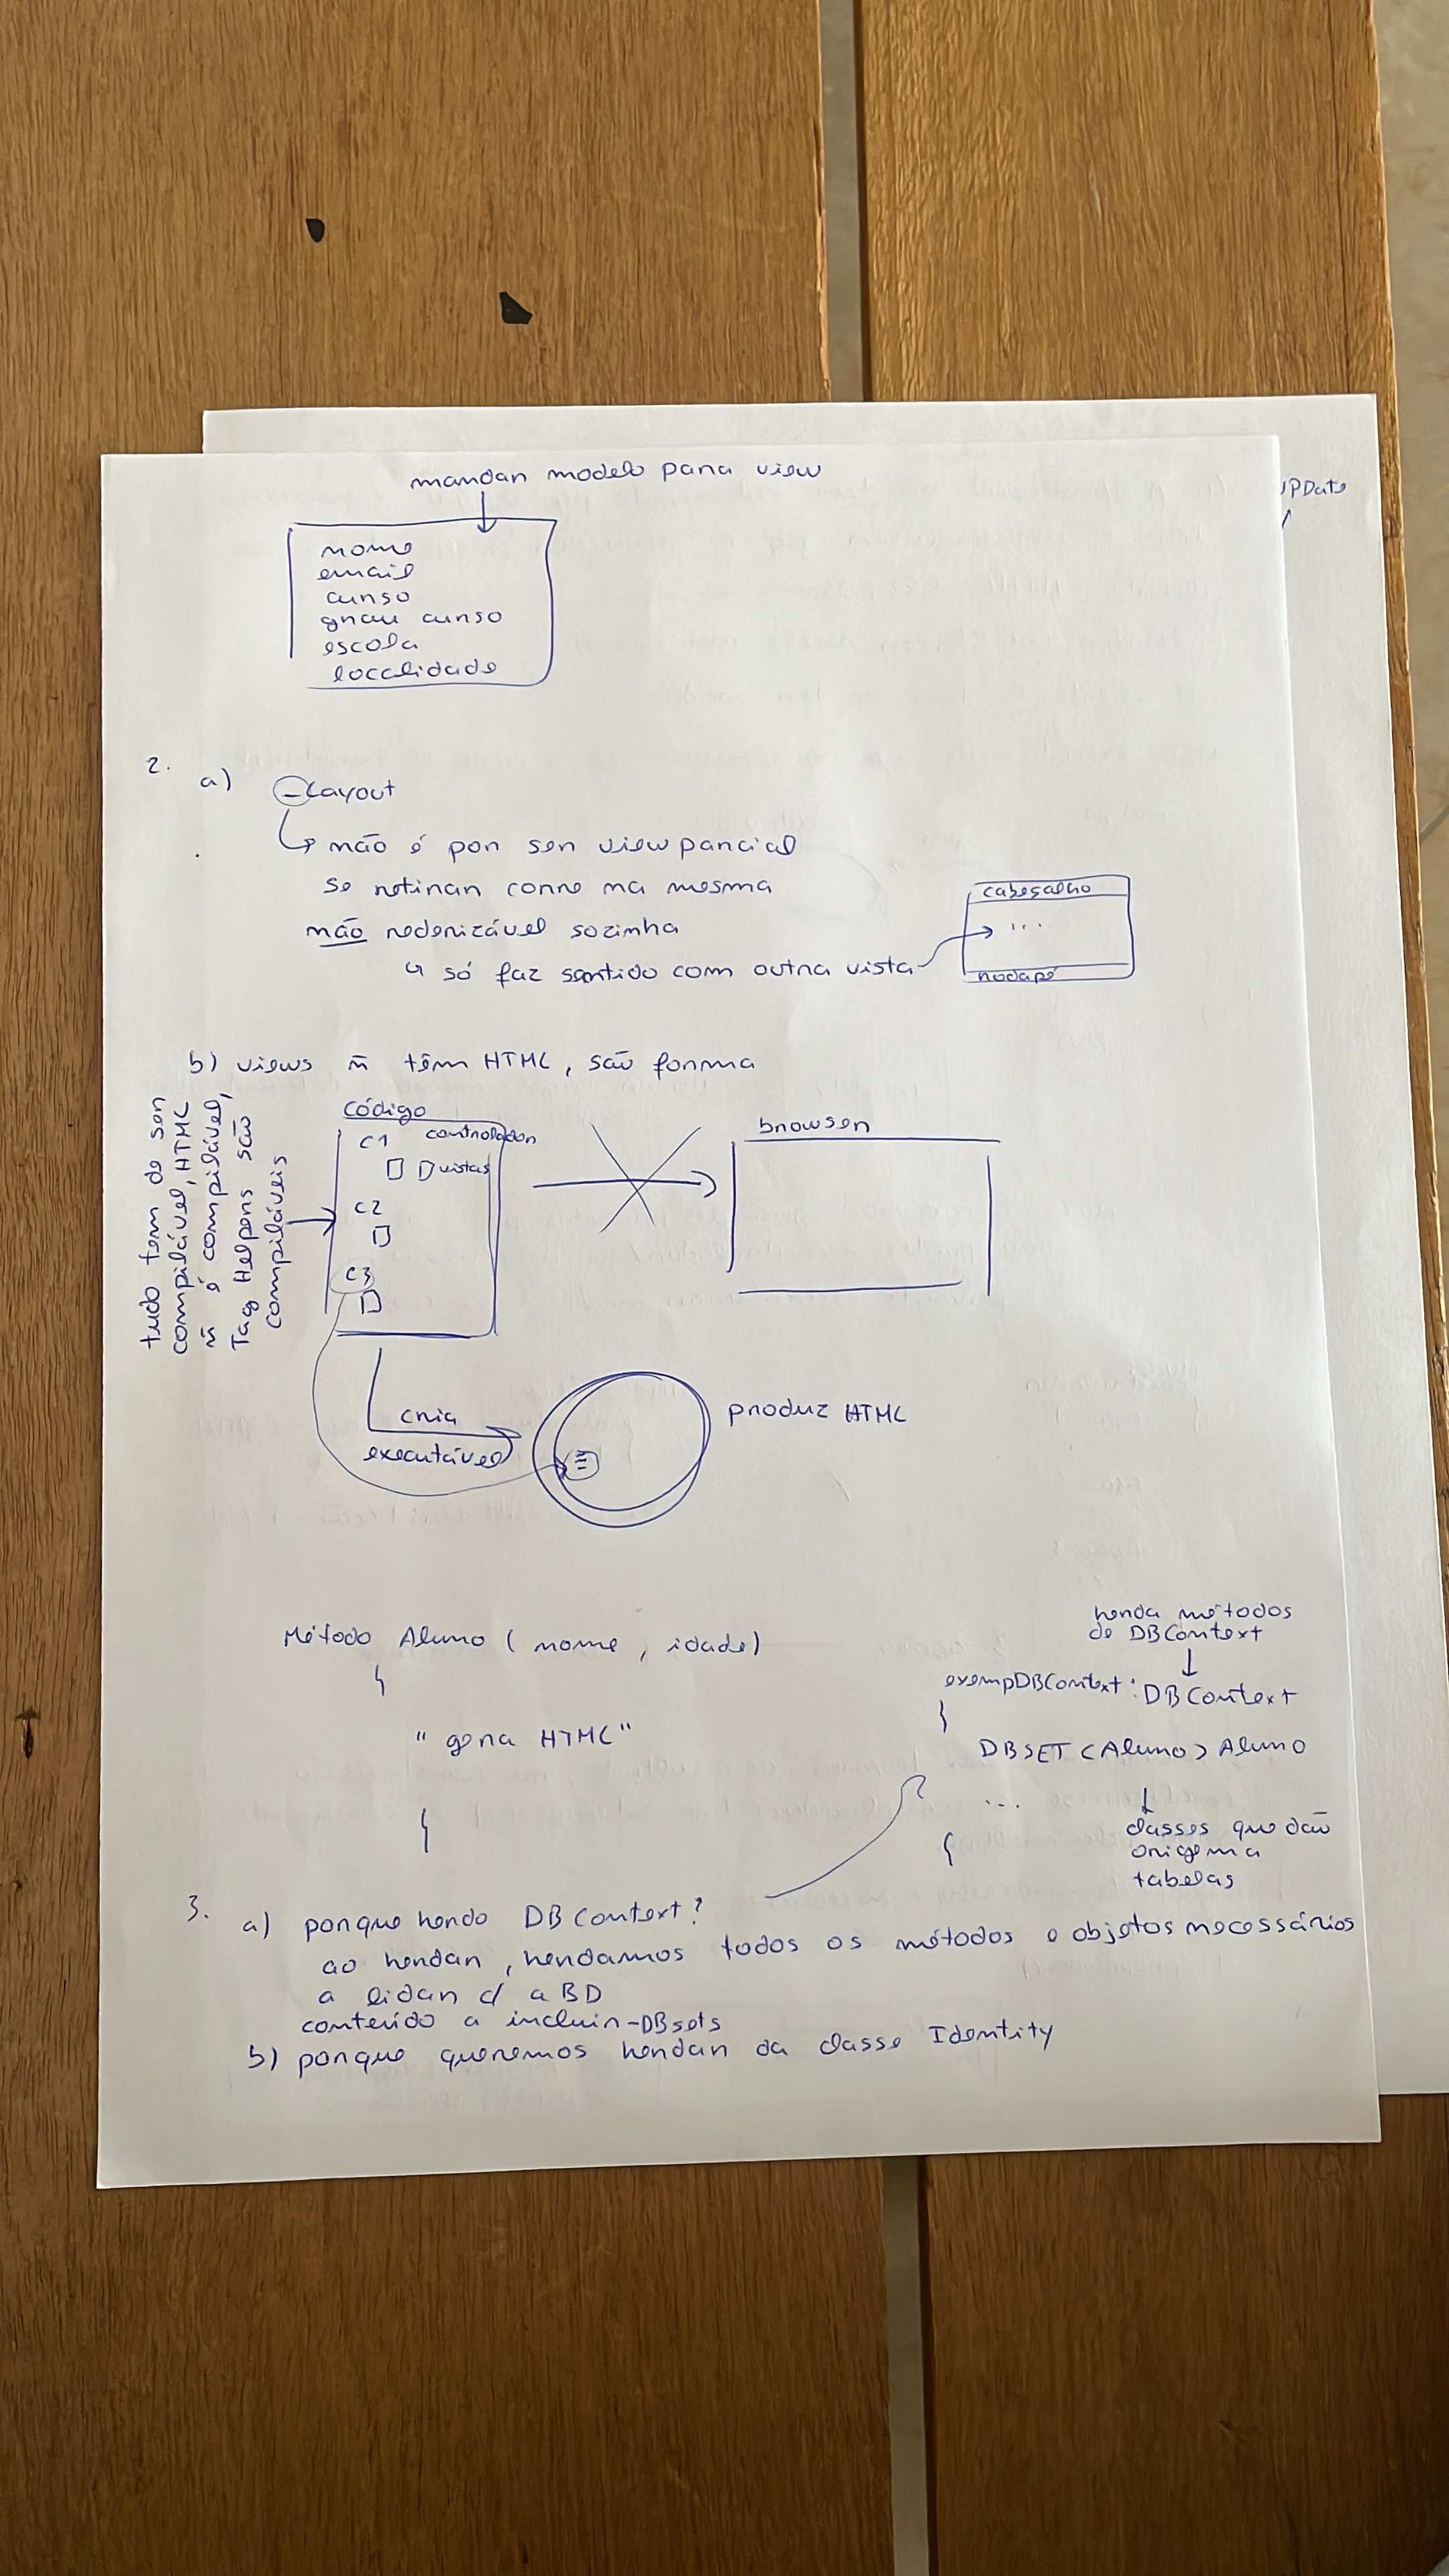 mandar modelo para view
nome
email
curso
grau curso
escola
localidade
UPDate
2.
a) _Layout
↳ não é por ser view parcial
se retirar corre na mesma
não rederizável sozinha
↳ só faz sentido com outra vista
cabeçalho
...
rodapé
b) views ñ têm HTML, são forma
tudo tem de ser
compilável, HTML
ñ é compilável,
Tag Helpers são
compiláveis
código
C1 controlador
vistas
C2
C3
browser
cria
executável
produz HTML
Método Aluno ( nome , idade )
{
" gera HTML "
}
herda métodos
de DBContext
exempDBContext : DBContext
{
DBSET <Aluno> Aluno
...
}
classes que dão
origem a
tabelas
3.
a) porque herdo DBContext?
ao herdar, herdamos todos os métodos e objetos necessários
a lidar c/ a BD
conteúdo a incluir - DBsets
b) porque queremos herdar da classe Identity